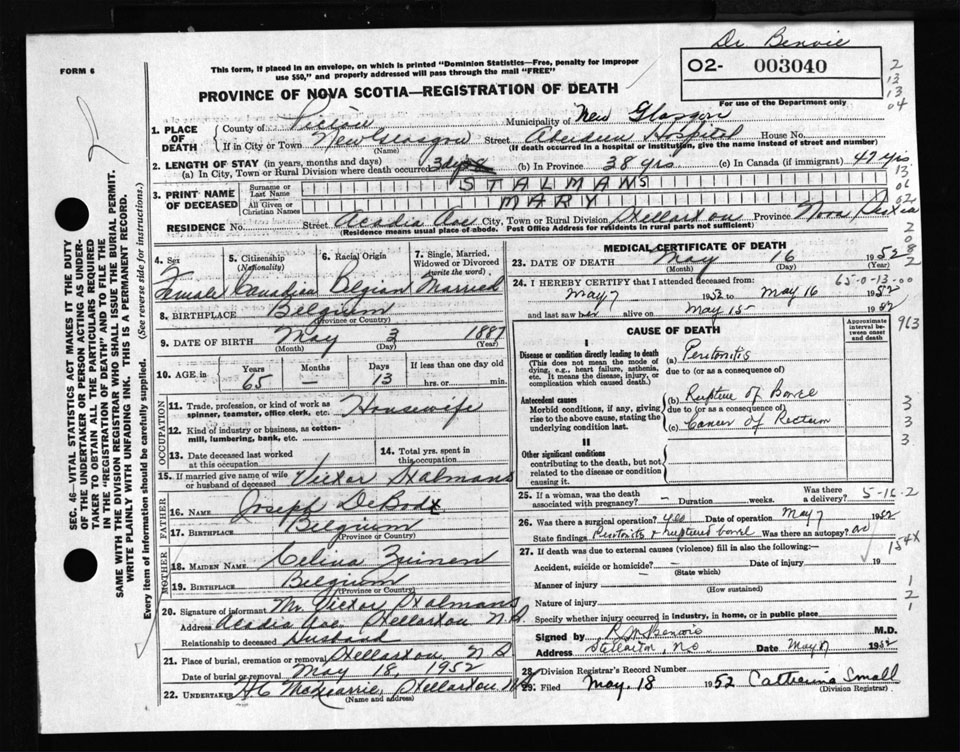 Dr Benvie
FORM 6
This form, if placed in an envelope, on which is printed "Dominion Statistics—Free, penalty for improper
use $50," and properly addressed will pass through the mail "FREE"
02- 003040
For use of the Department only
2
13
13
04
PROVINCE OF NOVA SCOTIA—REGISTRATION OF DEATH
1. PLACE OF DEATH
County of Pictou Municipality of New Glasgow
If in City or Town New Glasgow (Name) Street Aberdeen Hospital House No.
(If death occurred in a hospital or institution, give the name instead of street and number)
2. LENGTH OF STAY (in years, months and days)
(a) In City, Town or Rural Division where death occurred 3 days (b) In Province 38 yrs (c) In Canada (if immigrant) 47 yrs
3. PRINT NAME OF DECEASED
Surname or Last Name STALMANS
All Given or Christian Names MARY
RESIDENCE No. Street Acadia Ave City, Town or Rural Division Stellarton Province Nova Scotia
(Residence means usual place of abode. Post Office Address for residents in rural parts not sufficient)
13
06
02
2
0
8
2
SEC. 46—VITAL STATISTICS ACT MAKES IT THE DUTY
OF THE UNDERTAKER OR PERSON ACTING AS UNDER-
TAKER TO OBTAIN ALL THE PARTICULARS REQUIRED
IN THE "REGISTRATION OF DEATH" AND TO FILE THE
SAME WITH THE DIVISION REGISTRAR WHO SHALL ISSUE THE BURIAL PERMIT.
WRITE PLAINLY WITH UNFADING INK. THIS IS A PERMANENT RECORD.
Every item of information should be carefully supplied. (See reverse side for instructions.)
4. Sex
Female
5. Citizenship
(Nationality)
Canadian
6. Racial Origin
Belgian
7. Single, Married,
Widowed or Divorced
(write the word)
Married
8. BIRTHPLACE Belgium
(Province or Country)
9. DATE OF BIRTH May 3 1887
(Month) (Day) (Year)
10. AGE in Years 65 Months — Days 13 If less than one day old
hrs. or min.
OCCUPATION
11. Trade, profession, or kind of work as
spinner, teamster, office clerk, etc. Housewife
12. Kind of industry or business, as cotton-
mill, lumbering, bank, etc.
13. Date deceased last worked
at this occupation
14. Total yrs. spent in
this occupation
15. If married give name of wife
or husband of deceased Victor Stalmans
FATHER
16. NAME Joseph DeBodt
17. BIRTHPLACE Belgium
(Province or Country)
MOTHER
18. MAIDEN NAME Celina
19. BIRTHPLACE Belgium
(Province or Country)
20. Signature of informant Mr. Victor Stalmans
Address Acadia Ave. Stellarton N.S.
Relationship to deceased Husband
21. Place of burial, cremation or removal Stellarton, N S
Date of burial or removal May 18, 1952
22. UNDERTAKER Stellarton N.S.
(Name and address)
MEDICAL CERTIFICATE OF DEATH
23. DATE OF DEATH May 16 1952
(Month) (Day) (Year)
24. I HEREBY CERTIFY that I attended deceased from: 65-0-13-00
May 7 1952 to May 16 1952
and last saw her alive on May 15 1952
CAUSE OF DEATH
Approximate
interval be-
tween onset
and death
963
I
Disease or condition directly leading to death
(This does not mean the mode of
dying, e.g., heart failure, asthenia,
etc. It means the disease, injury, or
complication which caused death.)
(a) Peritonitis
due to (or as a consequence of)
Antecedent causes
Morbid conditions, if any, giving
rise to the above cause, stating the
underlying condition last.
(b) Rupture of Bowel
due to (or as a consequence of)
(c) Cancer of Rectum
3
3
3
II
Other significant conditions
contributing to the death, but not
related to the disease or condition
causing it.
25. If a woman, was the death
associated with pregnancy? — Duration weeks. Was there
a delivery? 5-16-2
26. Was there a surgical operation? yes Date of operation May 7 1952
State findings Peritonitis & ruptured bowel Was there an autopsy? no
154X
27. If death was due to external causes (violence) fill in also the following:—
Accident, suicide or homicide? — Date of injury 19
(State which)
Manner of injury
(How sustained)
Nature of injury
Specify whether injury occurred in industry, in home, or in public place
1
2
1
Signed by M.D.
Address Stellarton, NS Date May 17 1952
28. Division Registrar's Record Number
29. Filed May 18 1952 Catherine Small
(Division Registrar)